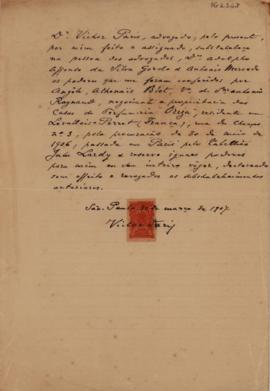 Dr. Victor Paris, advogado, pelo presente,
por mim feito e assignado, substabeleço
na pessoa dos advogados, Drs. Adolpho
Affonso da Silva Gordo e Antonio Mercado
os poderes que me foram conferidos por
Athenais Biot, Va. de Antonio
Raynaud, negociante e proprietaria das
Casas de Perfumeria Oriza, residente em
Levallois-Perret (França), rua de
nº 3, pela procuração de 30 de maio de
1906, passada em Paris pelo Tabellião
Lardy e reservo iguaes poderes
para mim em seu inteiro vigor, declarando
sem effeito e revogados os substabelecimentos
anteriores.
São Paulo, de março de 1907.
Victor Paris